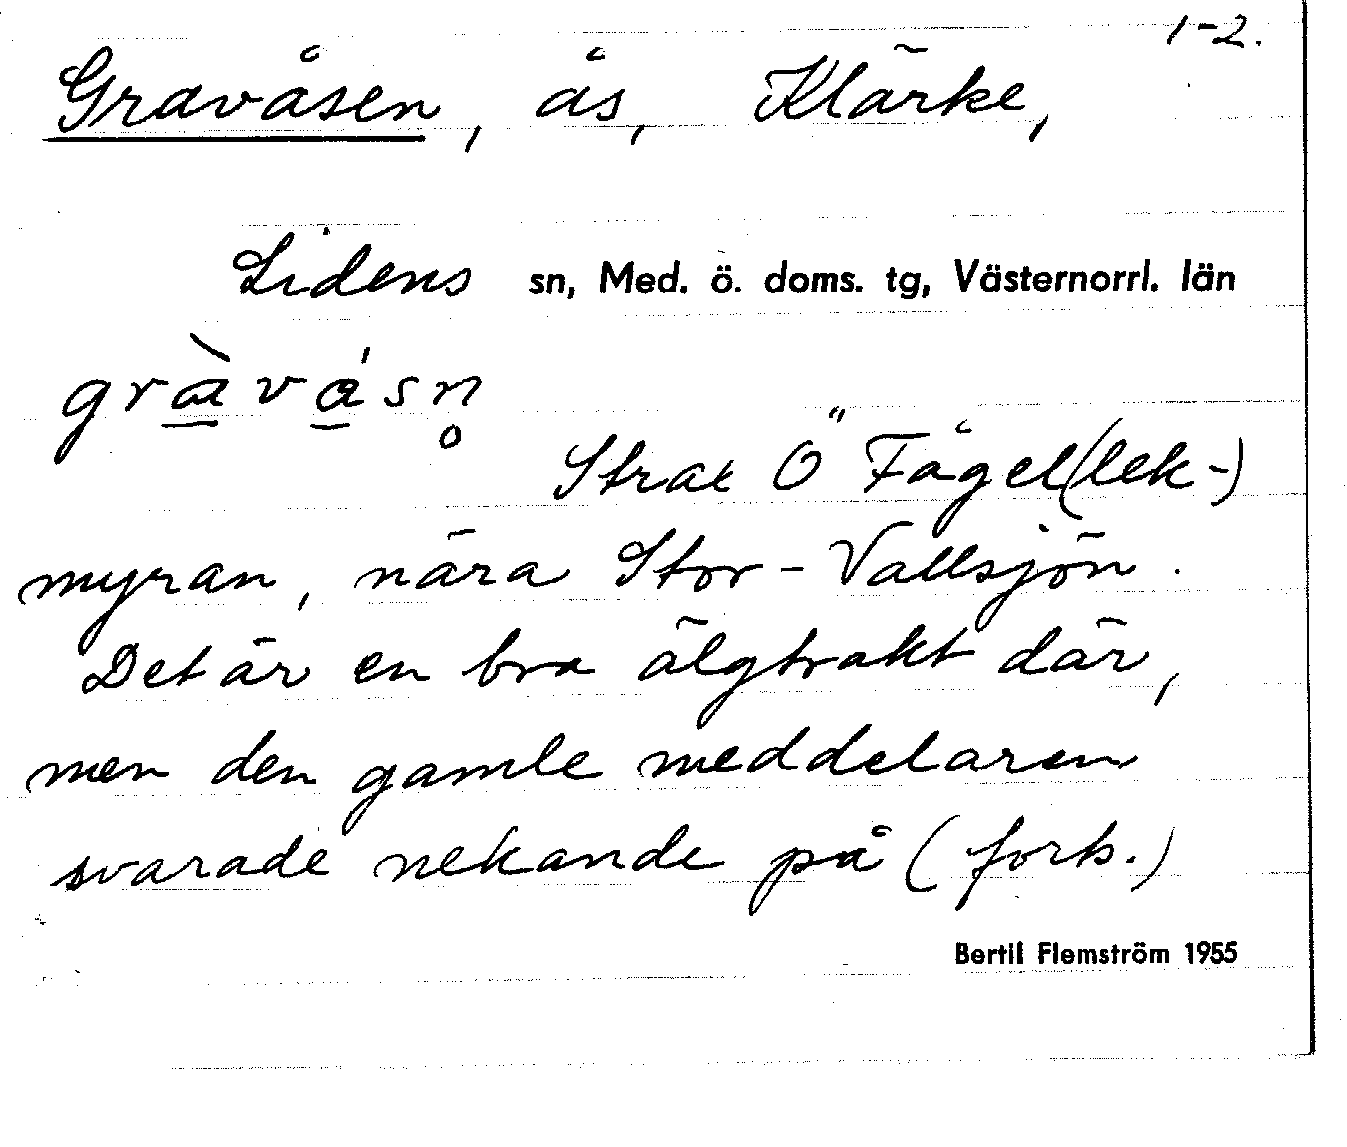 1-2.
Gravåsen, ås, Klärke,
Lidens sn, Med. ö. doms. tg, Västernorrl. län
grà̱vǻ̱sn̥
Strax Ö Fågel(lek-)
myran, nära Stor-Vallsjön.
Det är en bra älgtrakt där,
men den gamle meddelaren
svarade nekande på (forts.)
Bertil Flemström 1955